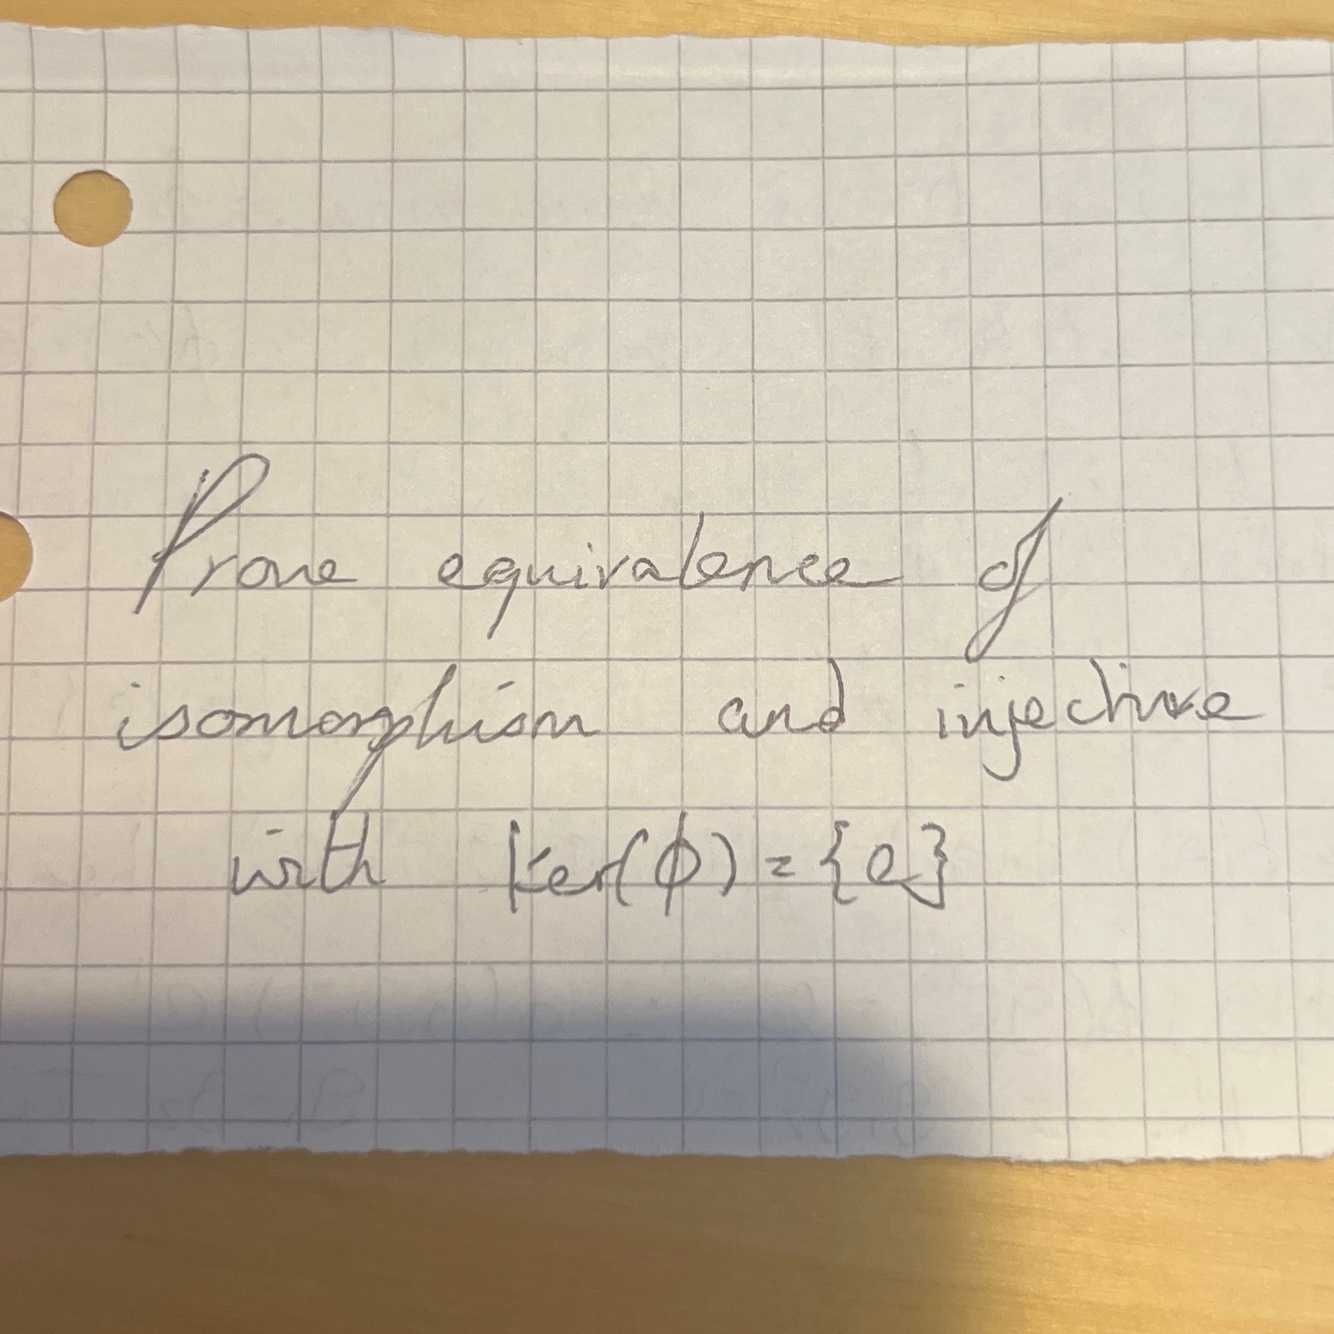 Prove equivalence of
isomorphism and injective
with Ker(ϕ) = {e}